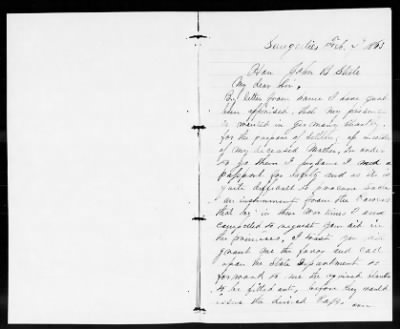 Saugerties Feb. 2 1863
Hon John B Steele
My dear Sir,
By letter from name I have just
been apprised, that my presence
is wanted in Germany shortly,
for the purpose of settling up
of my deceased Mother, In order
to go there I
passport for safety and as it is
quite difficult to procure such
an instrument from the
that be in these War times I am
compelled to request your aid in
the premises, I trust you will
grant me the favor and call
upon the State Department
forward to me the required blanks
to be filled out, before they would
issue the desired Pass.